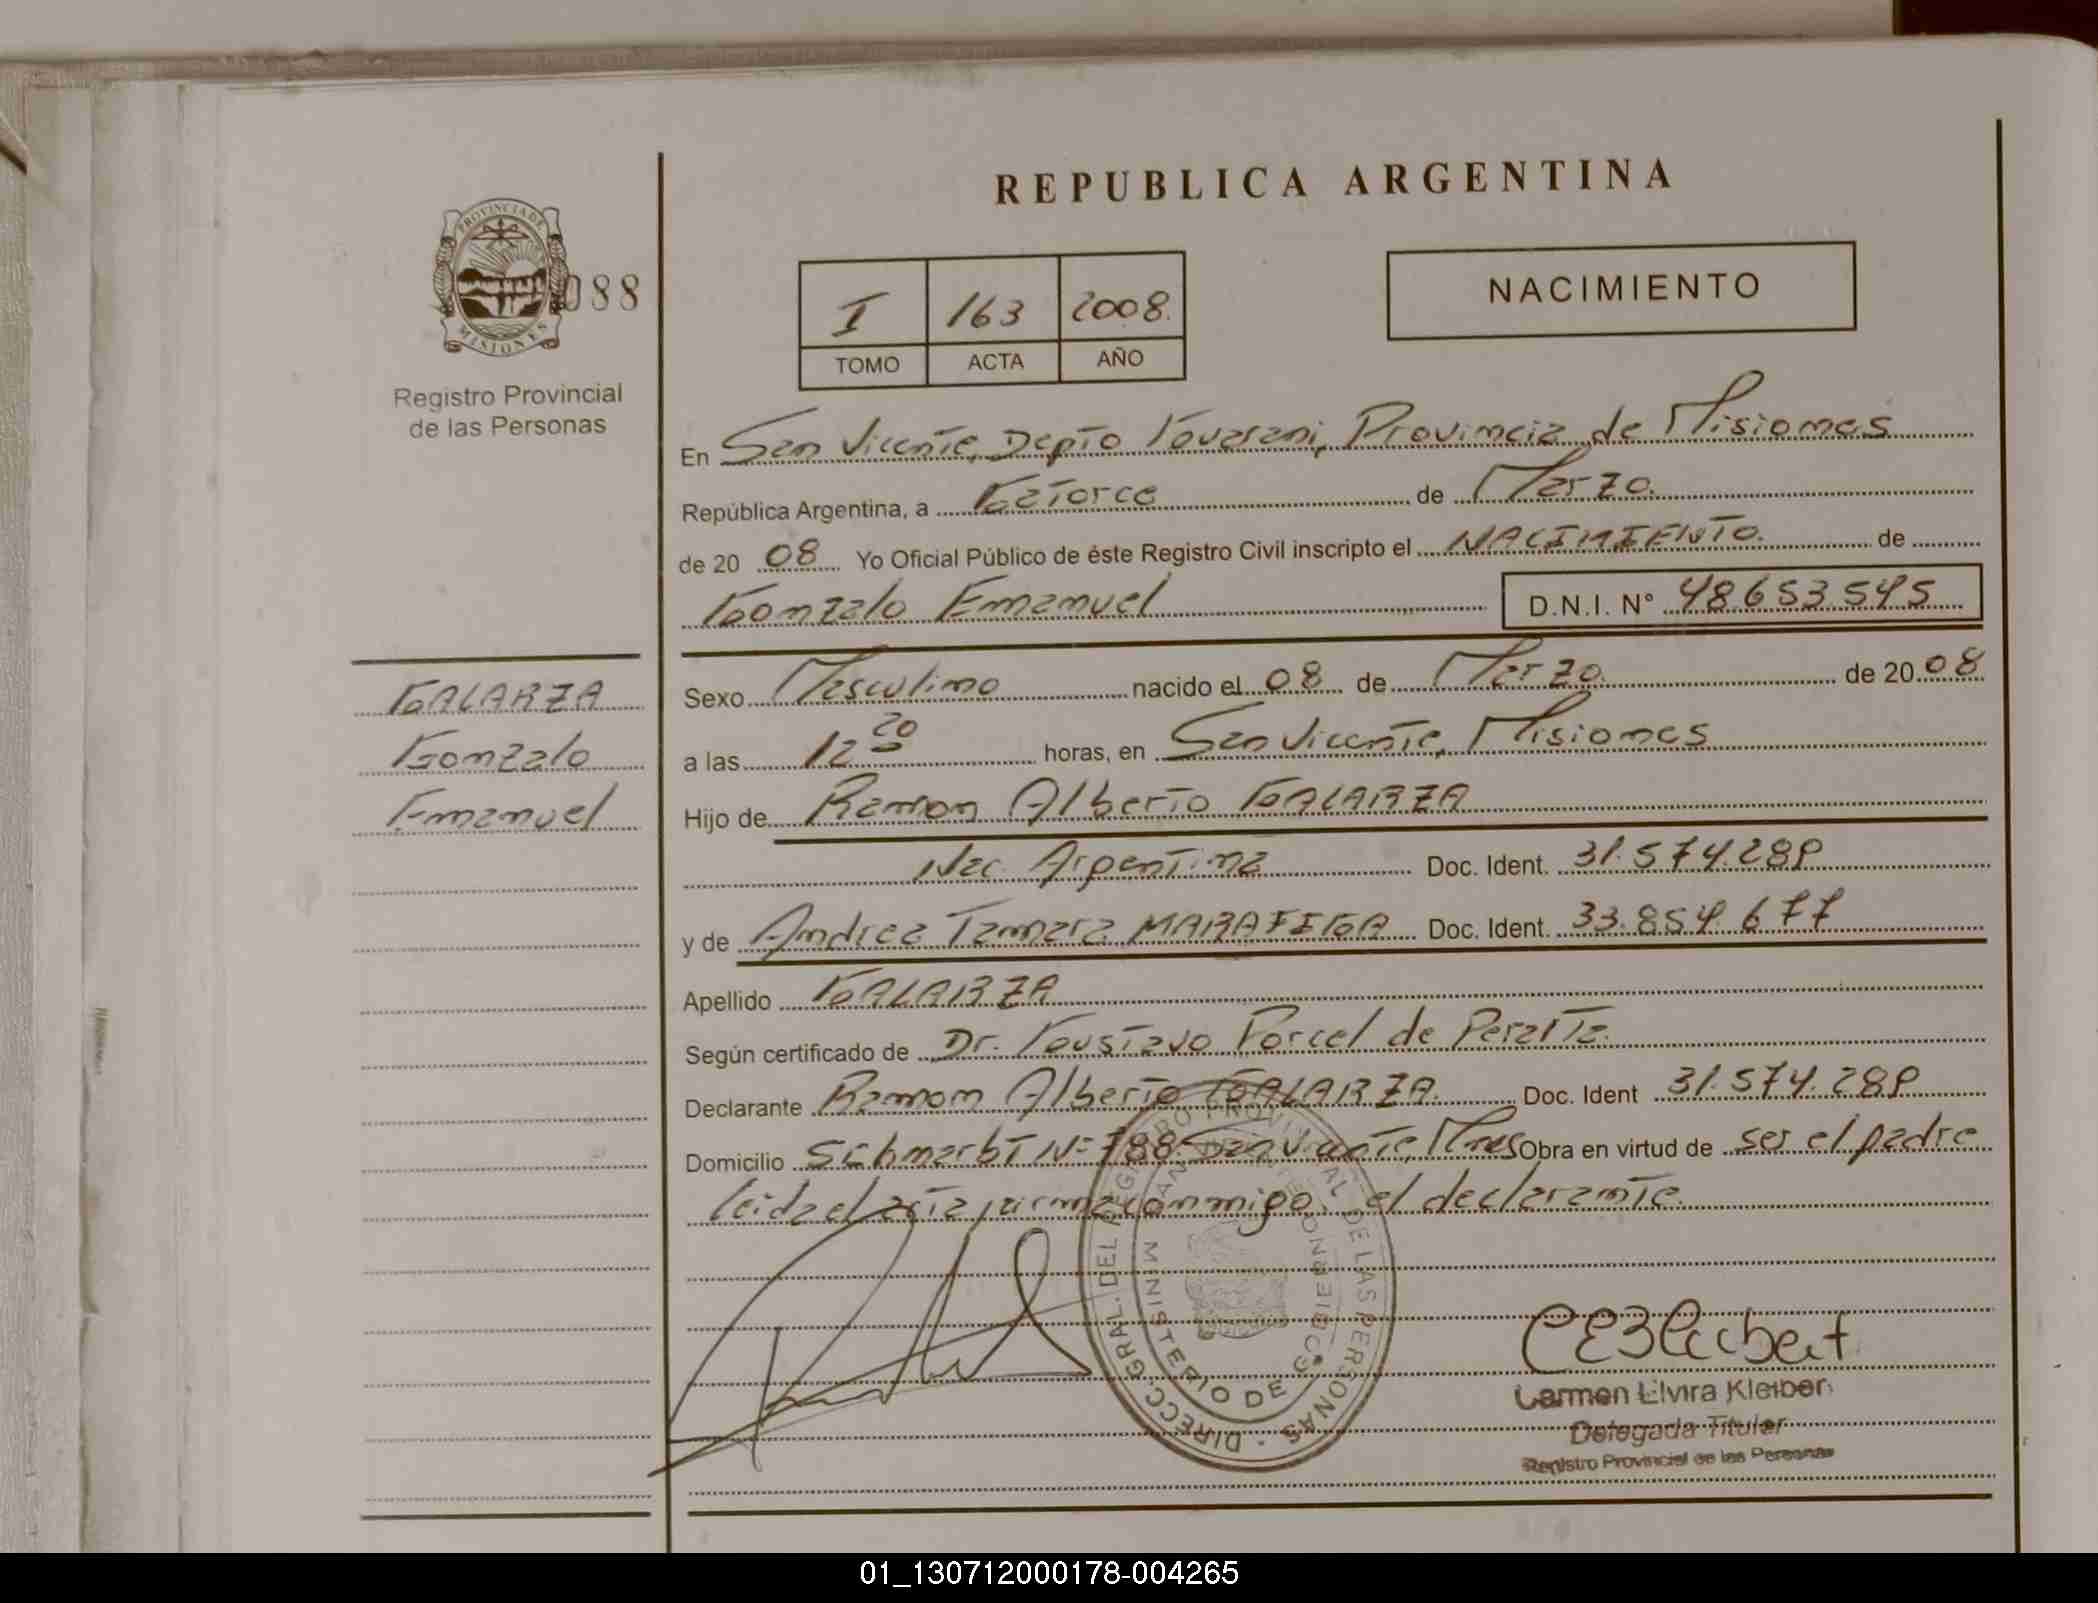 REPUBLICA ARGENTINA
PROVINCIA DE
MISIONES
088
Registro Provincial
de las Personas
I 163 2008
TOMO ACTA AÑO
NACIMIENTO
En San Vicente, Depto Guarani, Provincia de Misiones
República Argentina, a Catorce de Marzo
de 20 08 Yo Oficial Público de éste Registro Civil inscripto el NACIMIENTO de
Gonzalo Emanuel D.N.I. N° 48.653.545
GALARZA
Gonzalo
Emanuel
Sexo Masculino nacido el 08 de Marzo de 20 08
a las 12 20 horas, en San Vicente, Misiones
Hijo de Ramon Alberto GALARZA
Nac. Argentina Doc. Ident. 31.574.289
y de Andrea Tamara MARAFIGA Doc. Ident. 33.854.677
Apellido GALARZA
Según certificado de Dr. Gustavo Porcel de Peralta
Declarante Ramon Alberto GALARZA Doc. Ident 31.574.289
Domicilio N= 788 San Vicente, Mnes Obra en virtud de ser el padre
Leida el acta firma conmigo el declarante
DIRECC. GRAL. DEL REGISTRO PROVINCIAL DE LAS PERSONAS
MINISTERIO DE GOBIERNO
Carmen Elvira Kleiber
Delegada Titular
Registro Provincial de las Personas
01_130712000178-004265